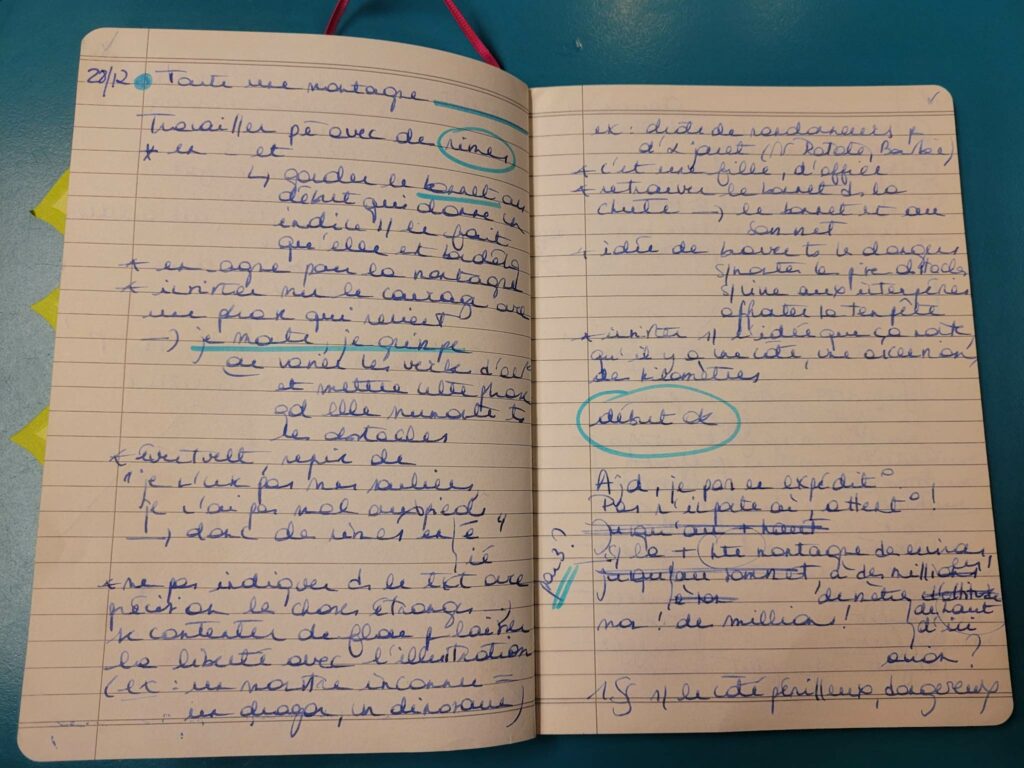 22/12 Toute une montagne
Travailler pê avec de rimes
* en - et
↳ garder le bonnet au
début qui donne un
indice s/ le fait
qu'elle est
* en -agne pour la montagne
* insister sur le courage avec
une phrase qui revient
→ je monte, je grimpe
ou varier les verbes d'act°
et mettre cette phrase
qd elle surmonte ts
les obstacles
* repic de
"je n'ux pas mes souliers
je n'ai pas mal aux pieds"
→ donc de rimes en é
ié
* ne pas indiquer ds le txt avec
précision le choses étranges →
se contenter de flou p laisser
la liberté avec l'illustration
(ex : un monstre inconnu =
un dragon, un dinosaure)
ex : drôle de randonneurs p
(Mr Patate, Barbie)
* c'est une fille, d'office
* retrouver le bonnet ds la
chute → le bonnet est au
sommet
* idée de braver ts le dangers
surmonter le pire obstacles
aux intempéries
affronter la tempête
* insister s/ l'idée que ça monte,
qu'il y a une côte, une ascension,
de kilomètres
début ok
Ajd, je pars en expédit°
Pas n'importe où, attent° !
Jusqu'au + haut
s/ la + hte montagne de
jusqu'au sommet, à des millions
de mètre d'altitude
non ! de million !
de haut
d'ici
ou on ?
1 § s/ le côté périlleux, dangereux